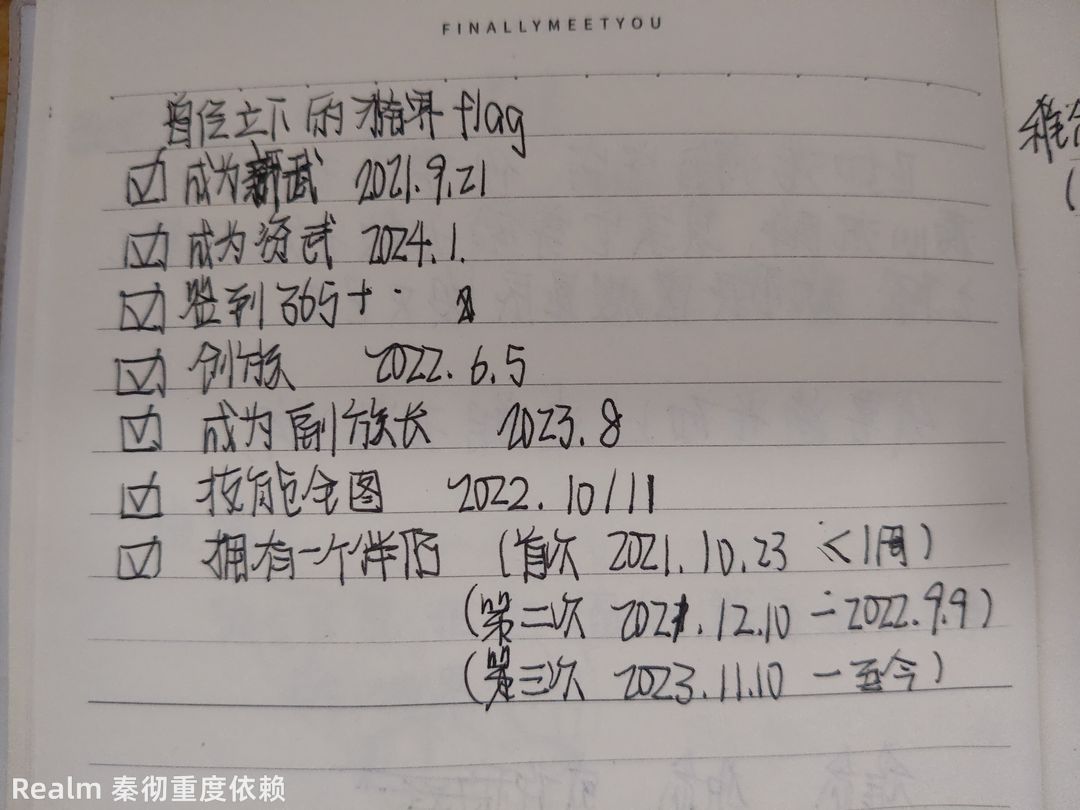 FINALLYMEETYOU
曾经立下的猫界flag
☑ 成为新武 2021.9.21
☑ 成为资武 2024.1.
☑ 签到365+
☑ 创族 2022.6.5
☑ 成为副族长 2023.8
☑ 技能全图 2022.10/11
☑ 拥有一个伴侣 (首次 2021.10.23 <1周)
(第二次 2021.12.10 - 2022.9.9)
(第三次 2023.11.10 - 至今)
Realm 秦彻重度依赖